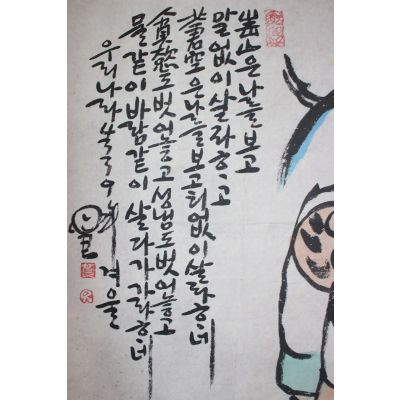 靑山은 나를 보고
말 없이 살라하고
蒼空은 나를 보고 티없이 살라하네
貪慾도 벗어놓고 성냄도 벗어놓고
물같이 바람같이 살다가 가라하네
우리나라 겨울